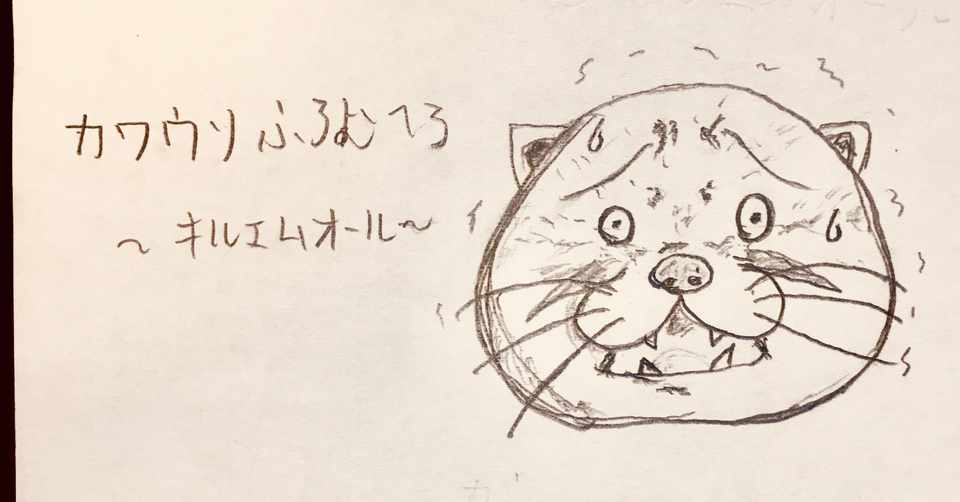 カワウソふろむへる
～キルエムオール～